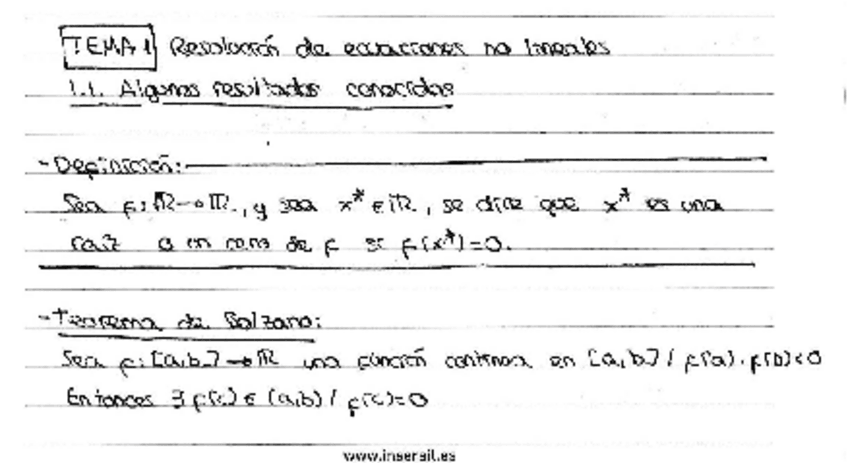 TEMA 1 Resolución de ecuaciones no lineales
1.1. Algunos resultados conocidos
- Definición:
Sea f: ℝ→ℝ, y sea x* ∈ ℝ, se dice que x* es una
raíz o un cero de f si f(x*)=0.
- Teorema de Bolzano:
Sea f: [a,b] → ℝ una función continua en [a,b] / f(a)·f(b)<0
Entonces ∃ f(c) ∈ (a,b) / f(c)=0
www.inserail.es